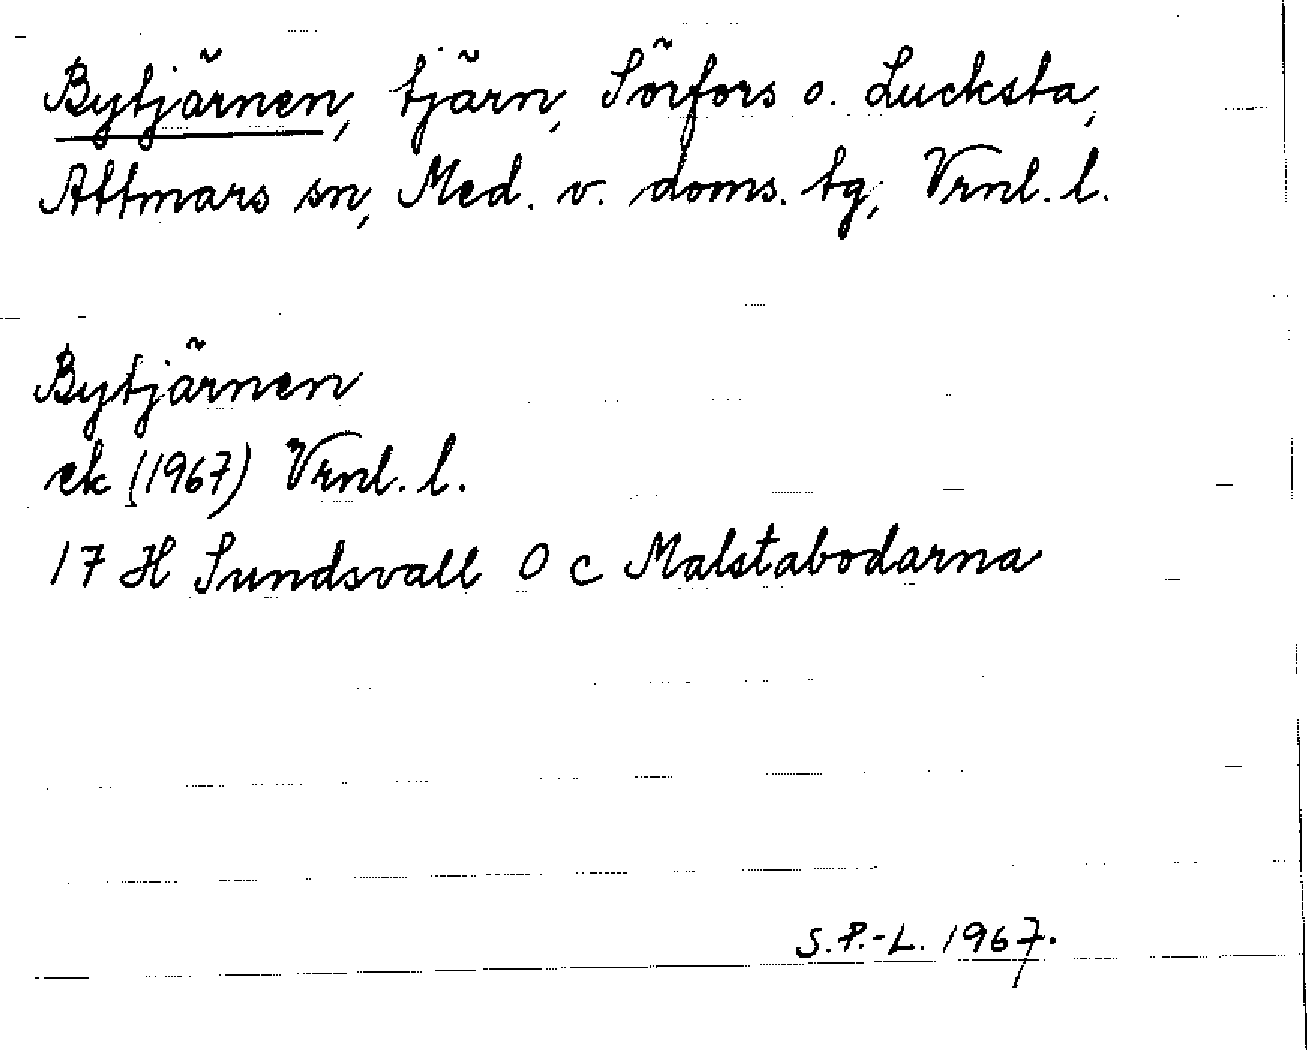 Bytjärnen, tjärn, Sörfors o. Lucksta,
Attmars sn, Med. v. doms. tg, Vrnl. l.
Bytjärnen
ek (1967) Vrnl. l.
17 H Sundsvall O c Malstabodarna
S.P.-L. 1967.